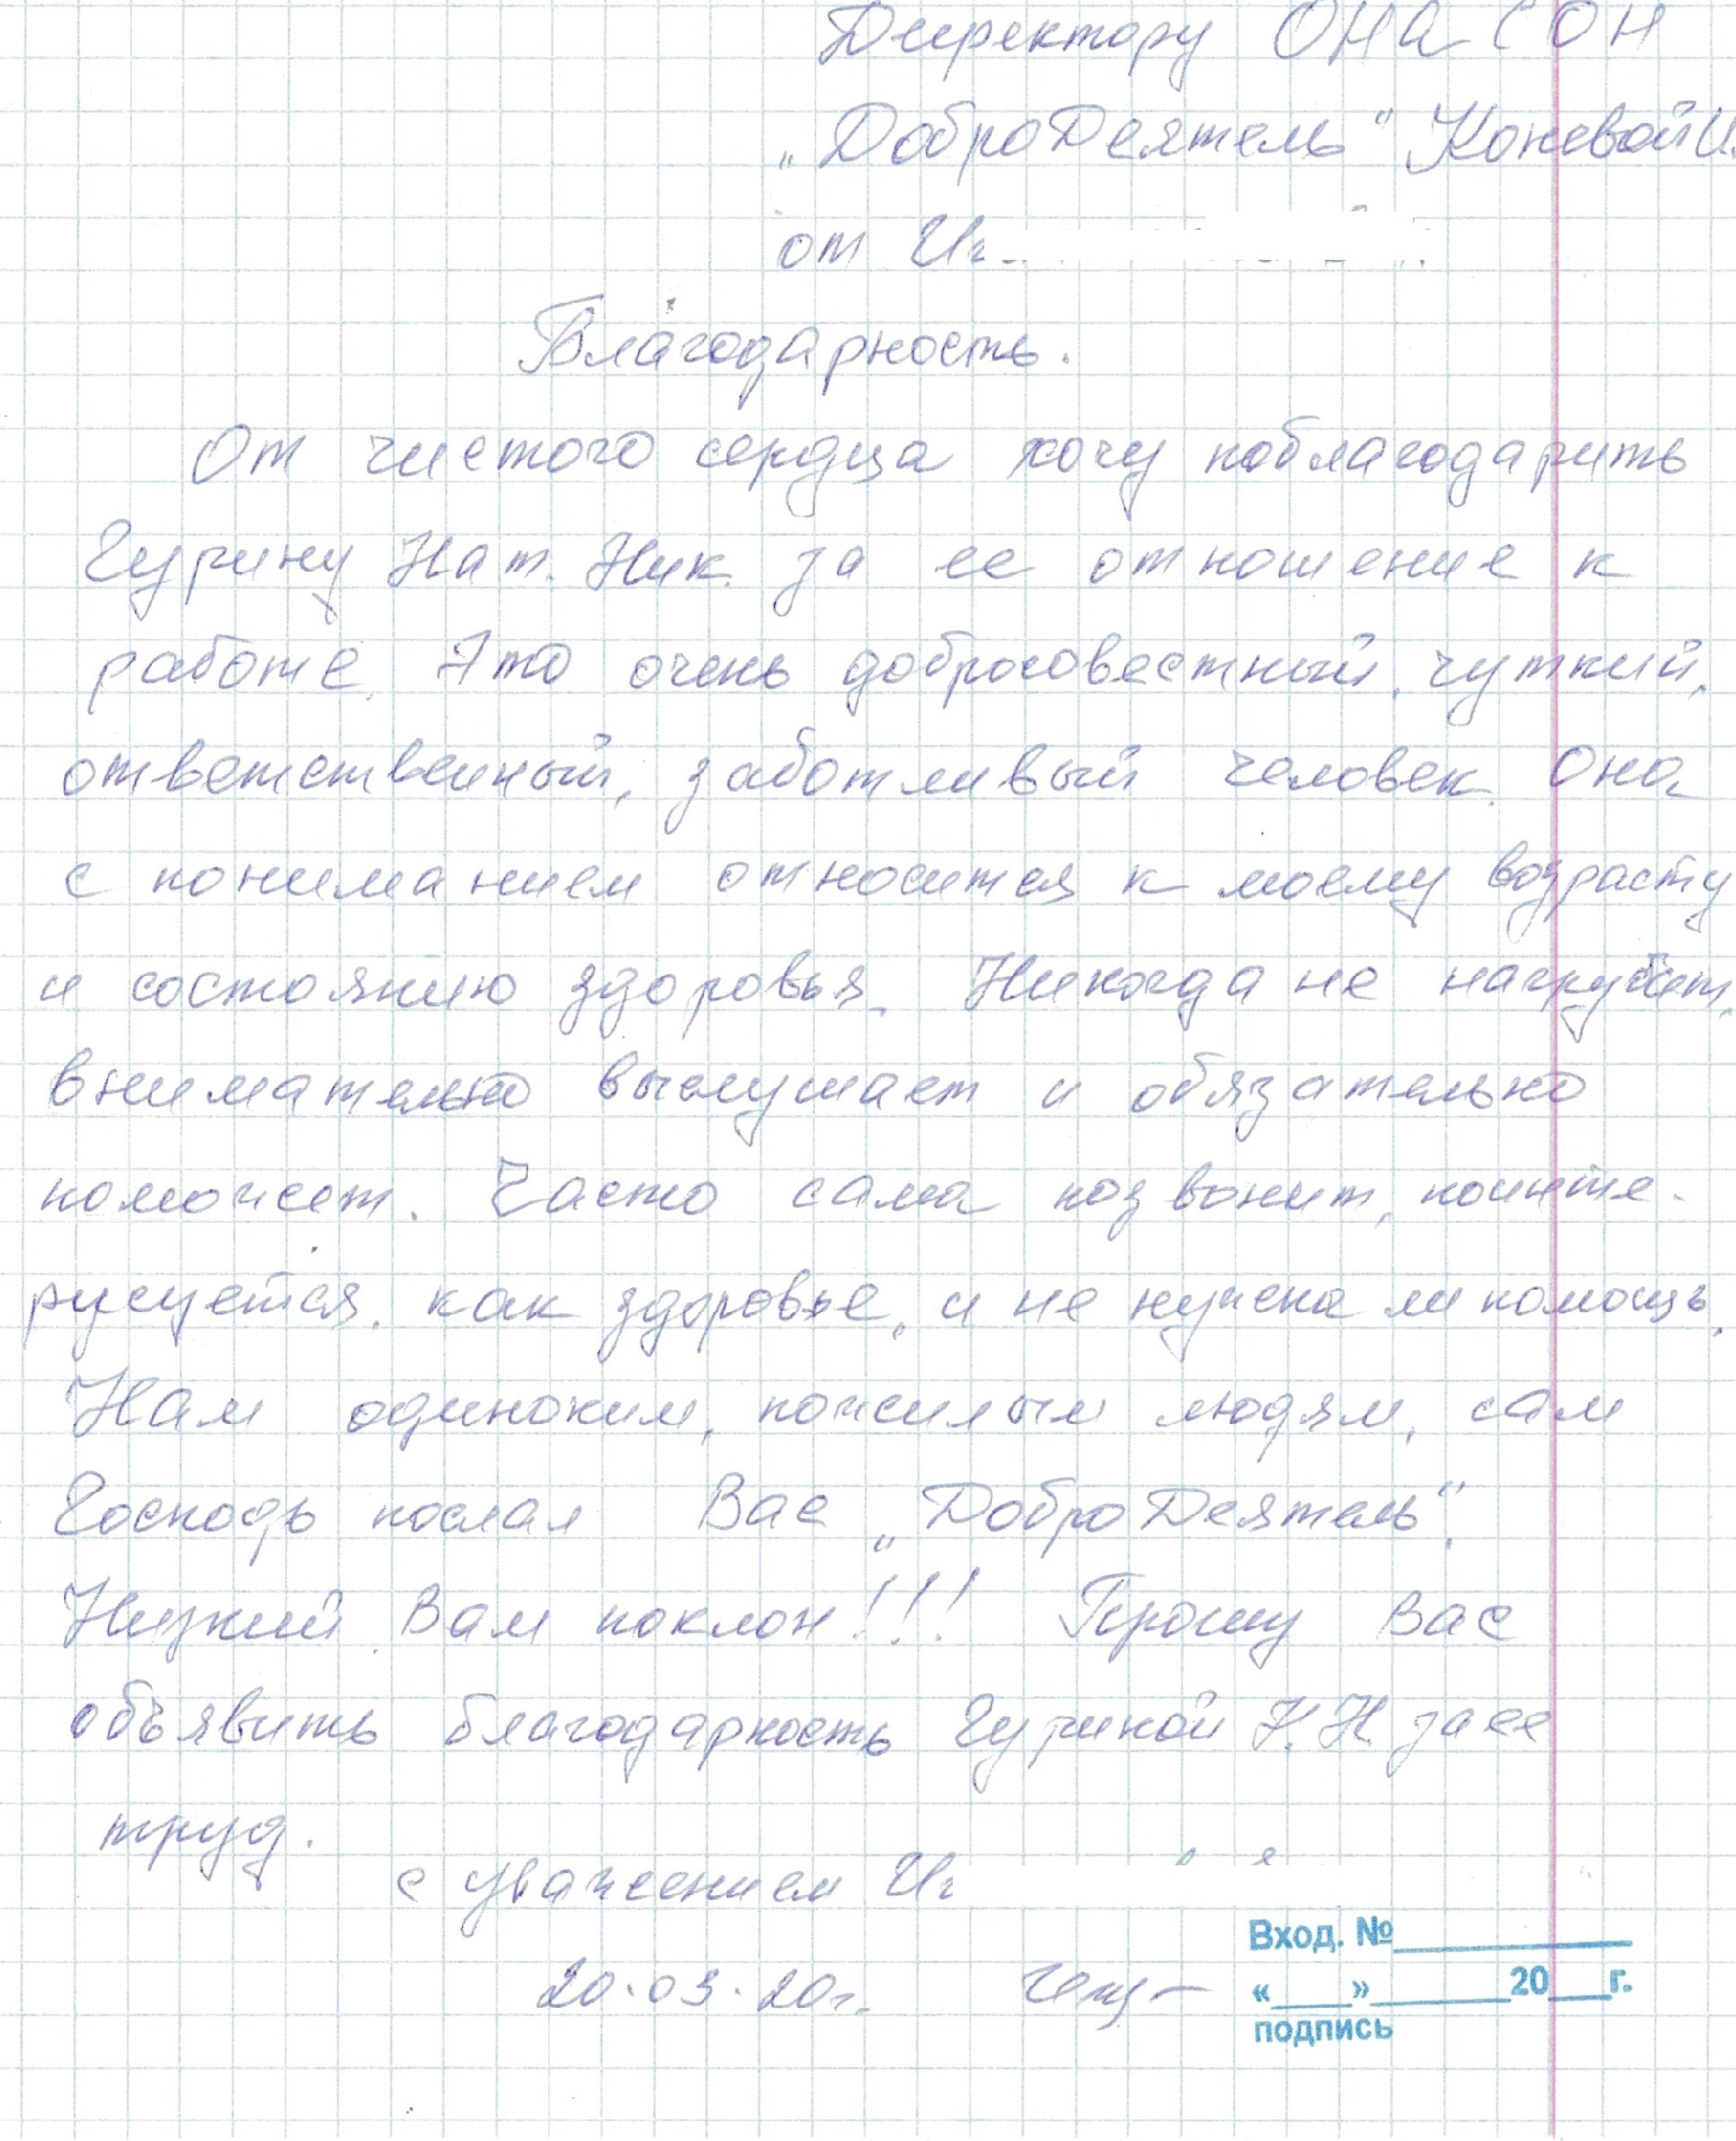 Директору ОНАСОН
„ДоброДеятель" Коневой И.
от Иг
Благодарность.
От чистого сердца хочу поблагодарить
Гурину Нат. Ник. за ее отношение к
работе. Это очень добросовестный, чуткий,
ответственный, заботливый человек. Она
с пониманием относится к моему возрасту
и состоянию здоровья. Никогда не нагрубит,
внимательно выслушает и обязательно
поможет. Часто сама позвонит, поинте-
ресуется, как здоровье, и не нужна ли помощь.
Нам одиноким, пожилым людям, сам
Господь послал Вас „ДоброДеятель".
Низкий Вам поклон!!! Прошу Вас
объявить благодарность Гуриной Н.Н. за ее
труд.
с уважением Иг
20.03.20г.
Вход. №
« » 20 г.
подпись